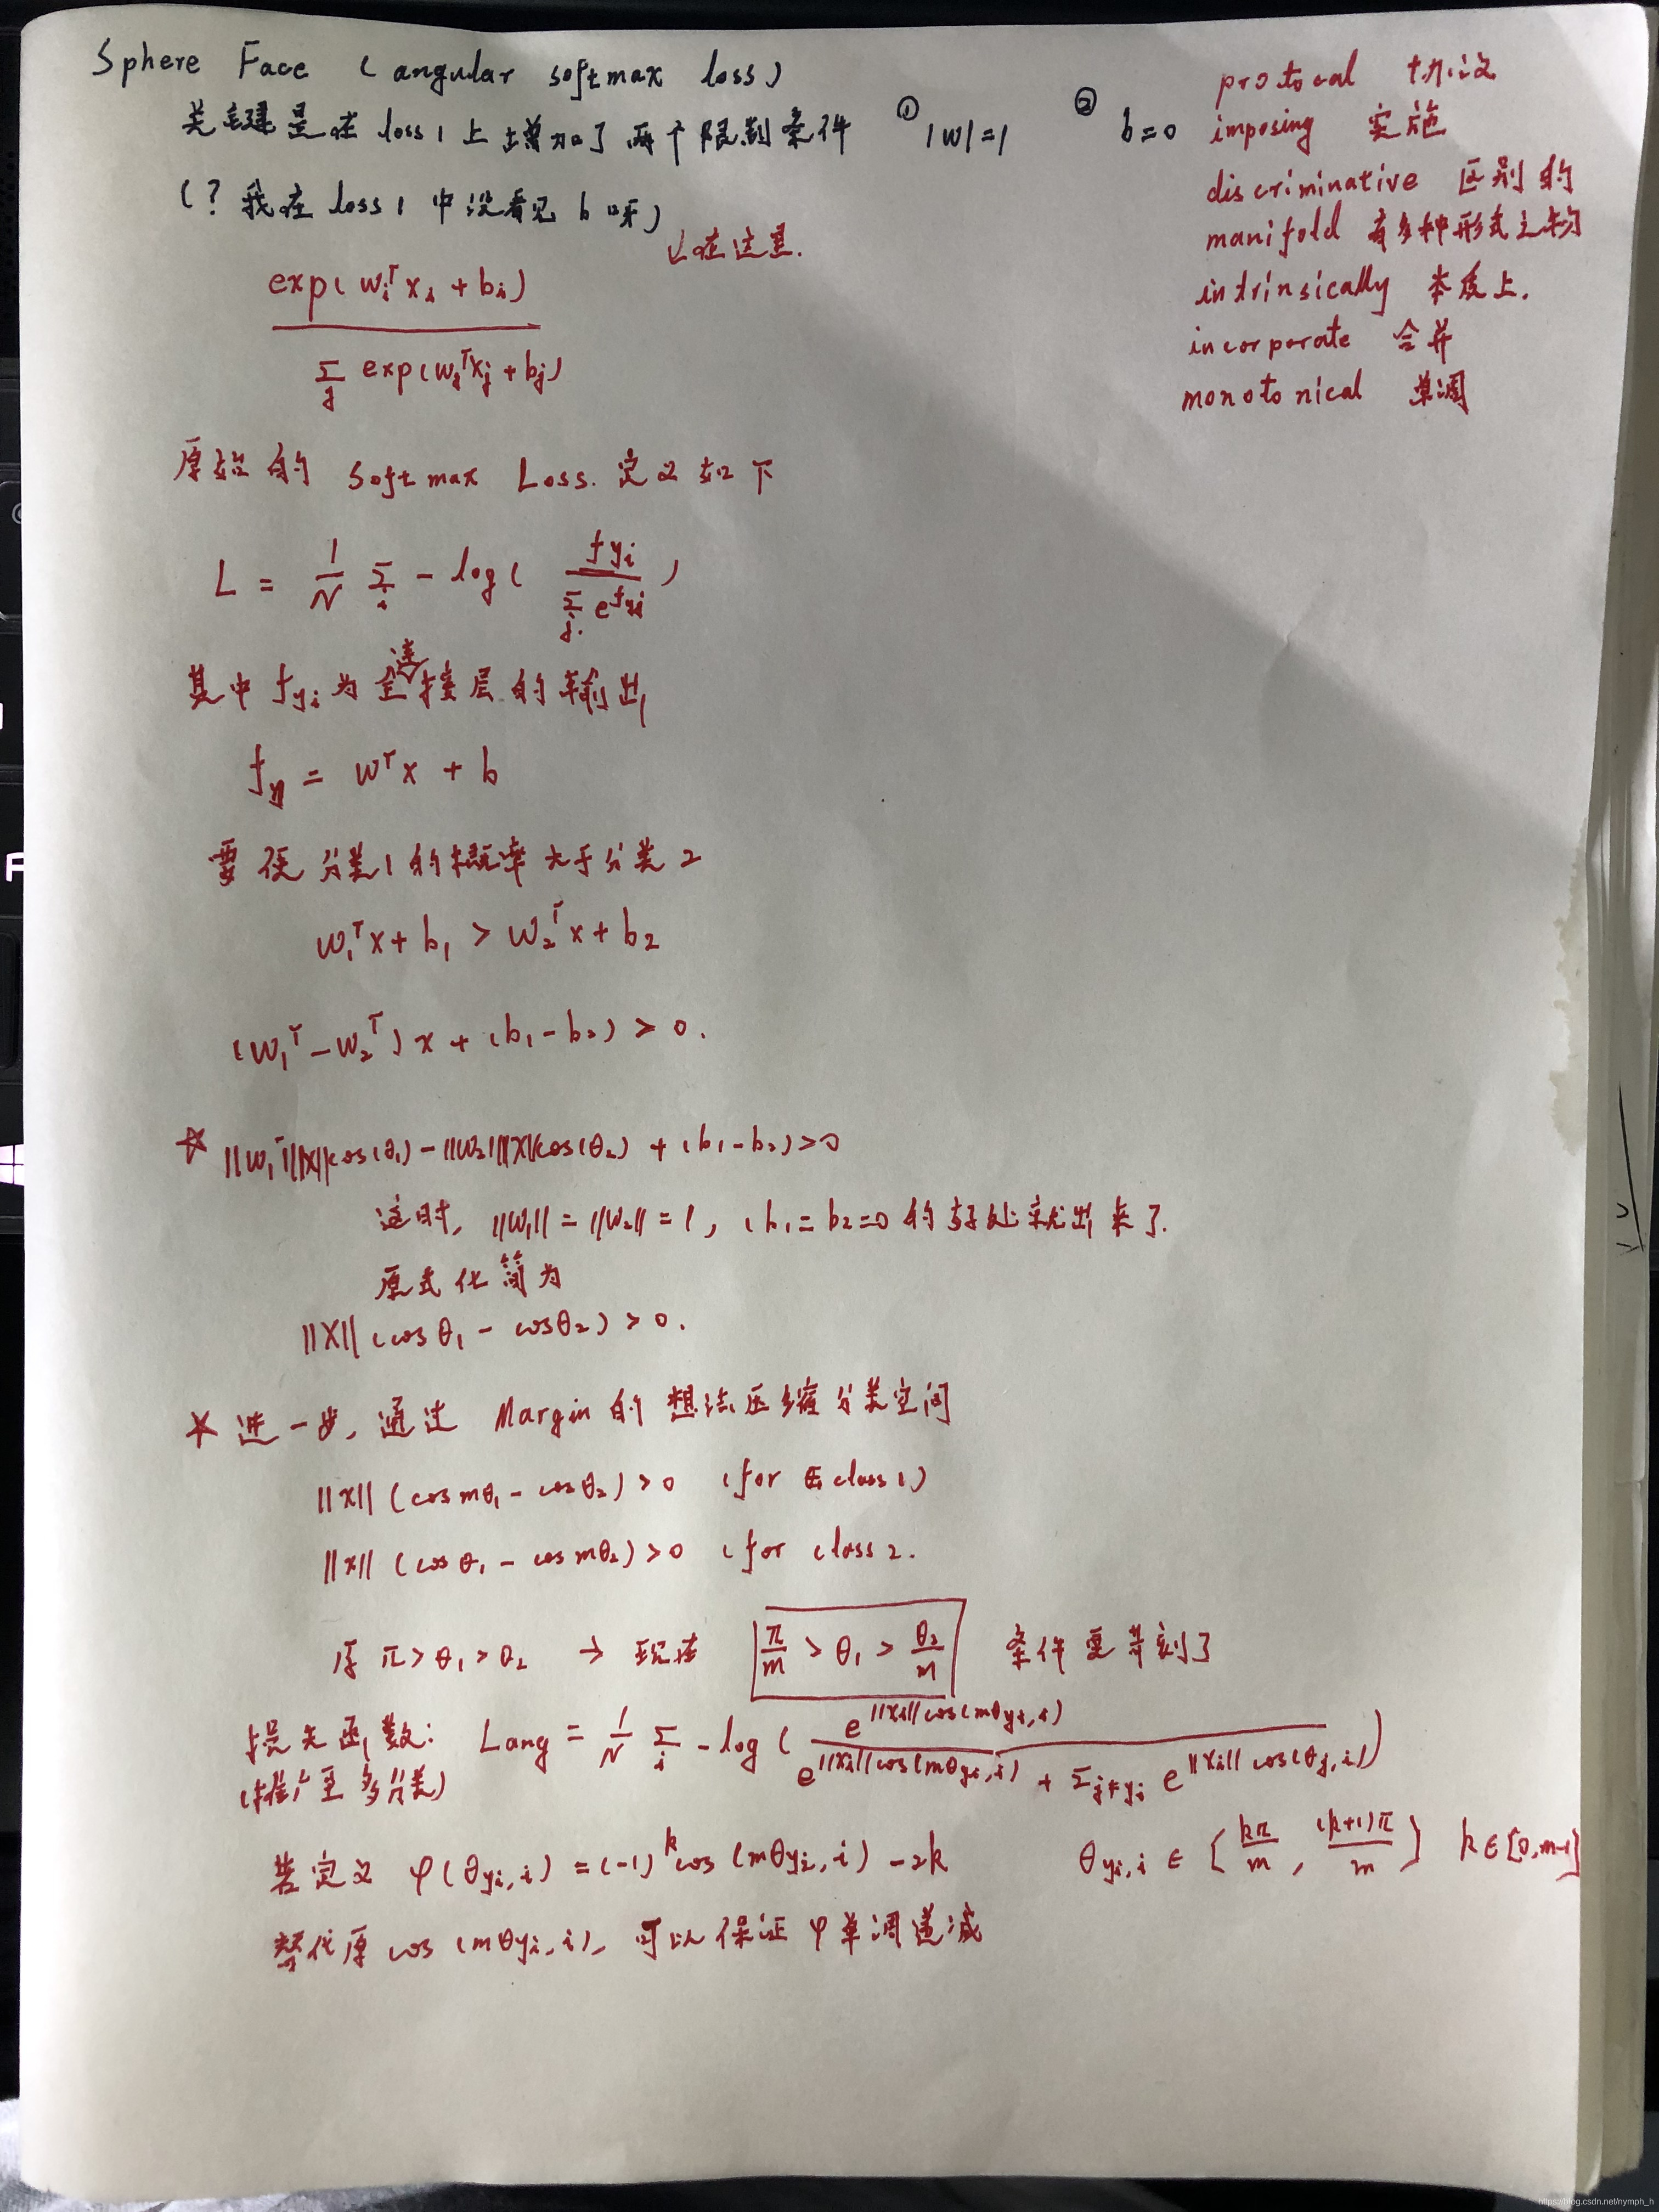 Sphere Face (angular softmax loss)
关键是在 loss 1 上增加了两个限制条件 ① |w|=1 ② b=0
(? 我在 loss 1 中没看见 b 呀)
↙在这里.
exp(wᵢᵀxᵢ + bᵢ)
Σⱼ exp(wⱼᵀxⱼ + bⱼ)
protocal 协议
imposing 实施
discriminative 区别的
manifold 有多种形式之物
intrinsically 本质上.
incorporate 合并
monotonical 单调
原始的 Softmax Loss. 定义如下
L = 1/N Σᵢ - log( f yᵢ / Σⱼ. e^{f yᵢ} )
其中 f yᵢ 为全连接层的输出
f y = wᵀx + b
要使分类1的概率大于分类2
w₁ᵀx + b₁ > w₂ᵀx + b₂
(w₁ᵀ - w₂ᵀ) x + (b₁ - b₂) > 0.
☆ ||w₁ᵀ|| ||x|| cos(θ₁) - ||w₂|| ||x|| cos(θ₂) + (b₁ - b₂) > 0
这时, ||w₁|| = ||w₂|| = 1, (b₁ = b₂ = 0 的好处就出来了.
原式化简为
||X|| (cos θ₁ - cos θ₂) > 0.
☆ 进一步, 通过 Margin 的想法压缩分类空间
||x|| (cos mθ₁ - cos θ₂) > 0 (for class 1)
||x|| (cos θ₁ - cos mθ₂) > 0 (for class 2.
原 π > θ₁ > θ₂ → 现在 π/m > θ₁ > θ₂/m 条件更苛刻了
损失函数: Lang = 1/N Σᵢ - log ( e^{||xᵢ|| cos(mθyᵢ,i)} / e^{||xᵢ|| cos(mθyᵢ,i)} + Σ_{j≠yᵢ} e^{||xᵢ|| cos(θⱼ,i)} )
(推广至多分类)
若定义 φ(θyᵢ,i) = (-1)ᵏ cos(mθyᵢ,i) - 2k θyᵢ,i ∈ [kπ/m, (k+1)π/m] k ∈ [0, m-1]
替代原 cos(mθyᵢ,i), 可以保证 φ 单调递减
https://blog.csdn.net/nymph_h